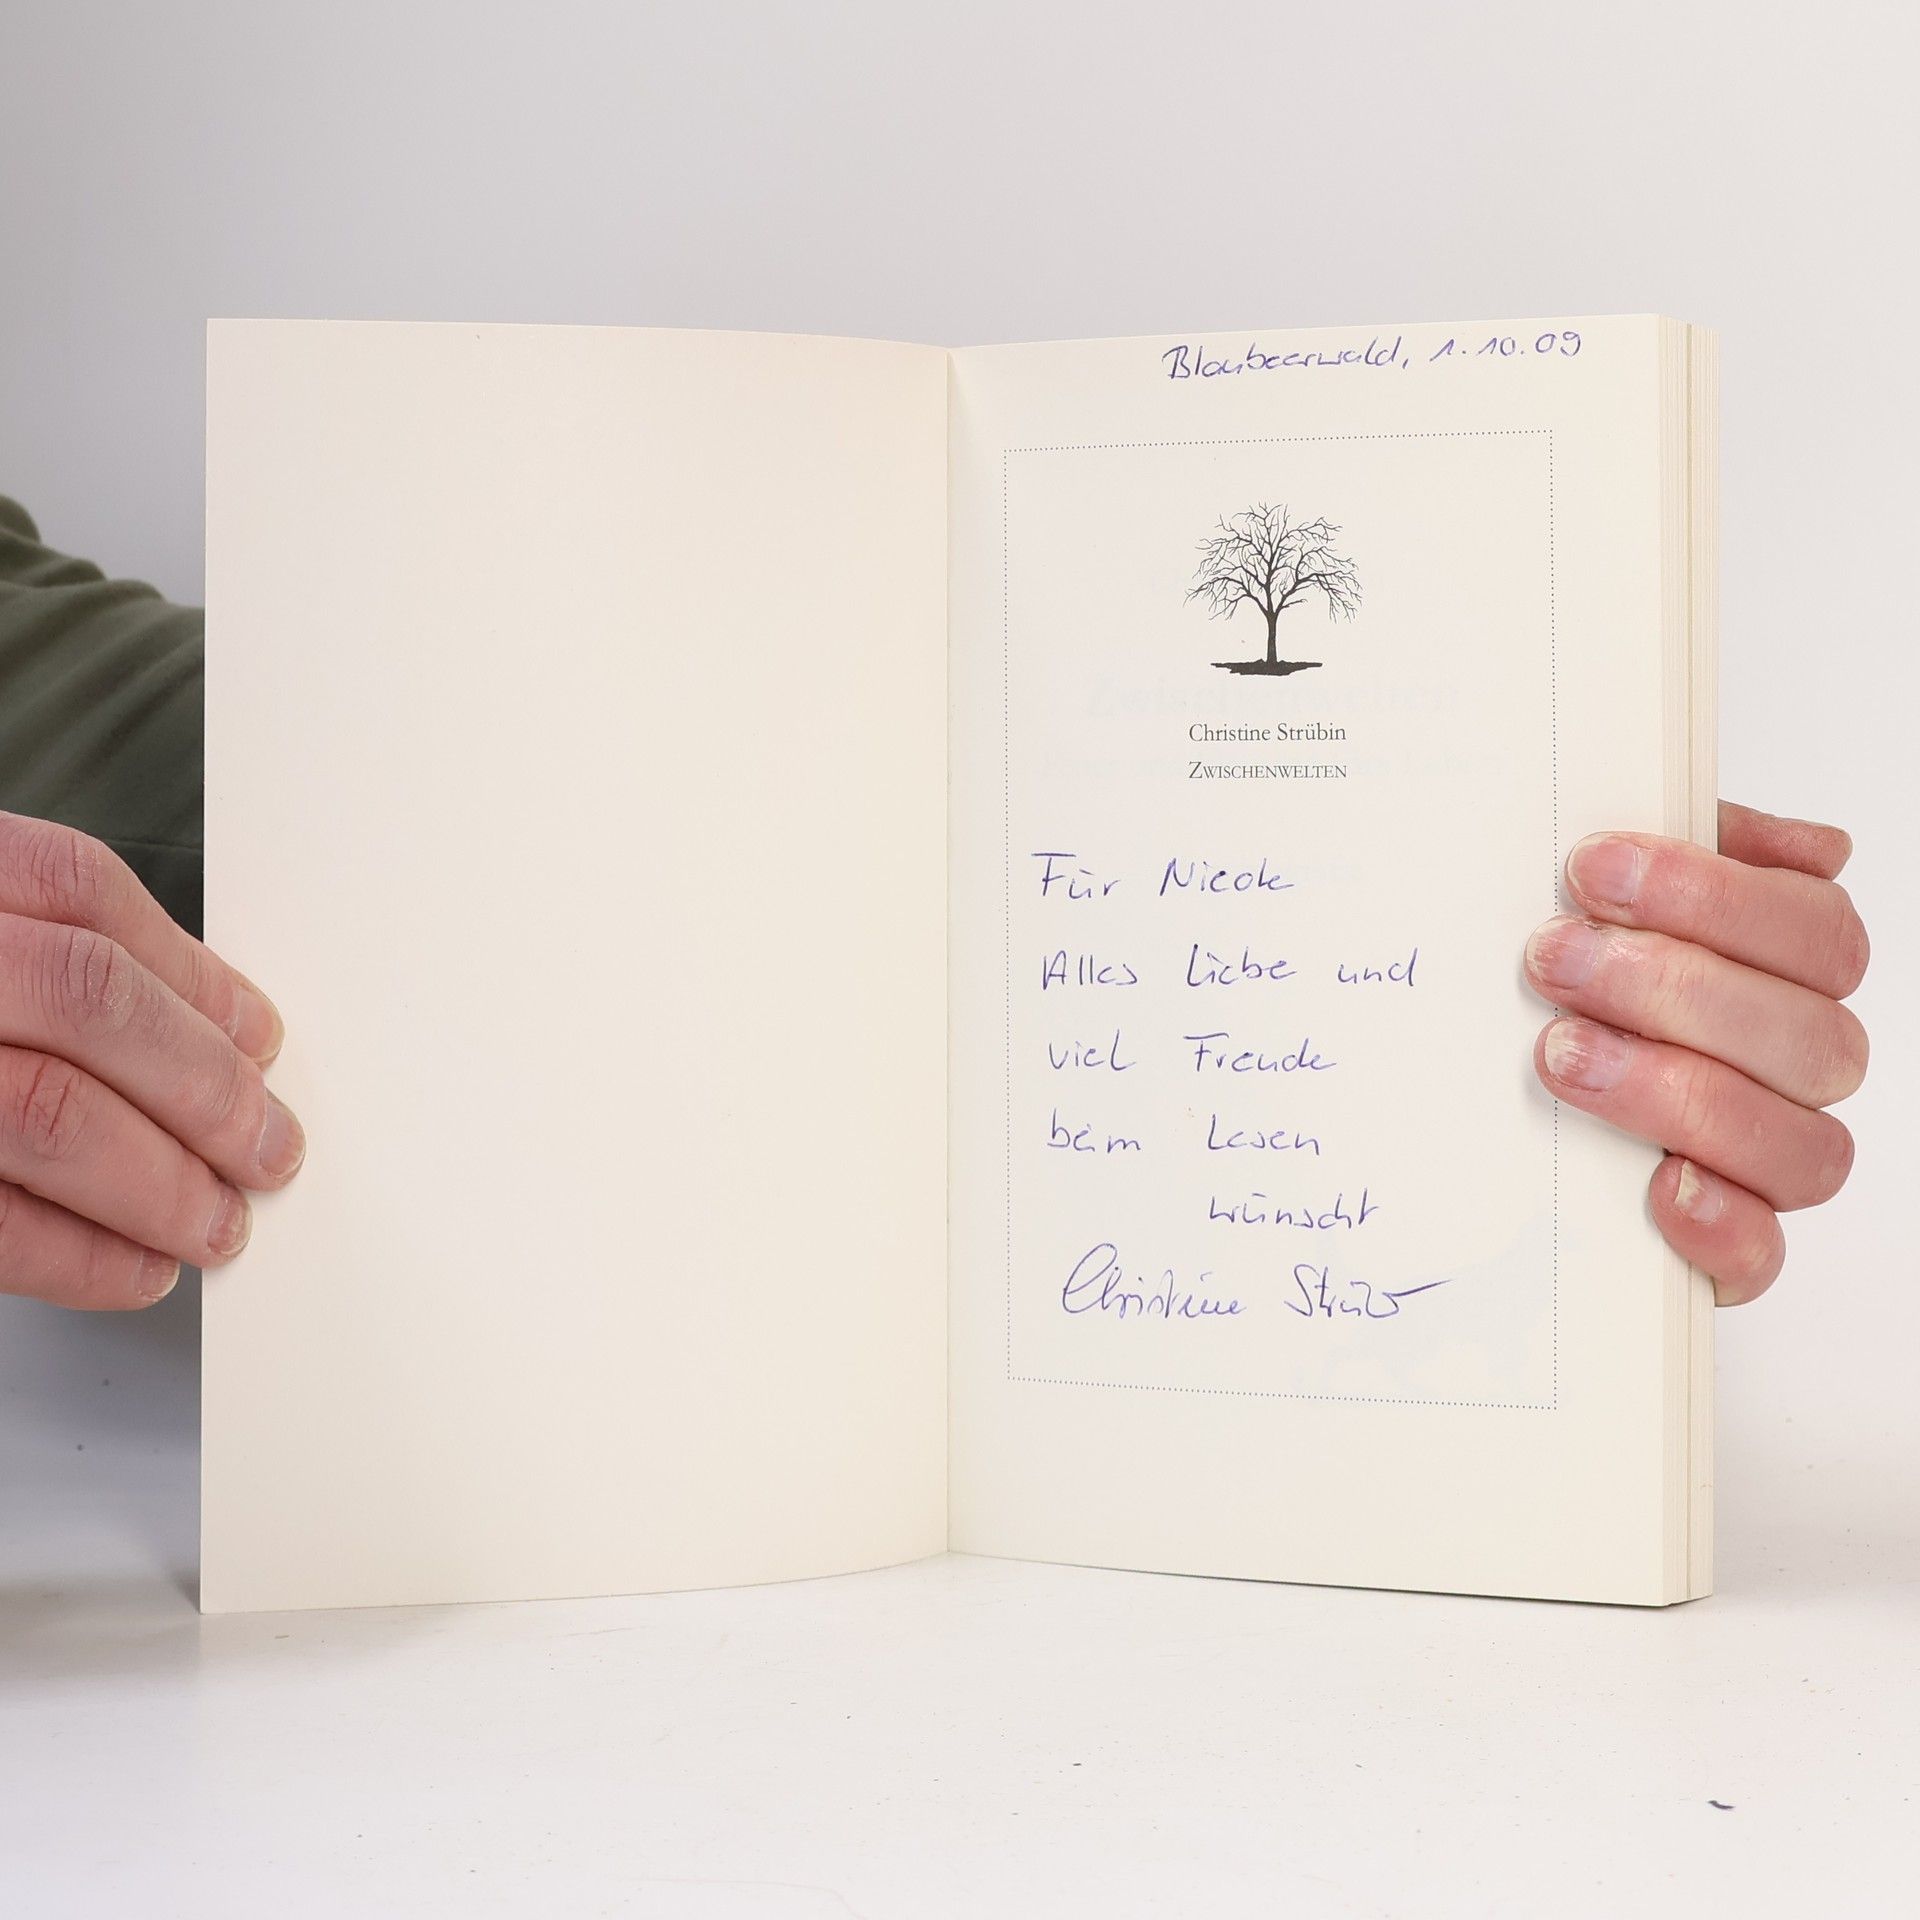 Blaubeerwald, 1.10.09
Christine Strübin
ZWISCHENWELTEN
Für Nicole
Alles Liebe und
viel Freude
beim Lesen
wünscht
Christine Strübin